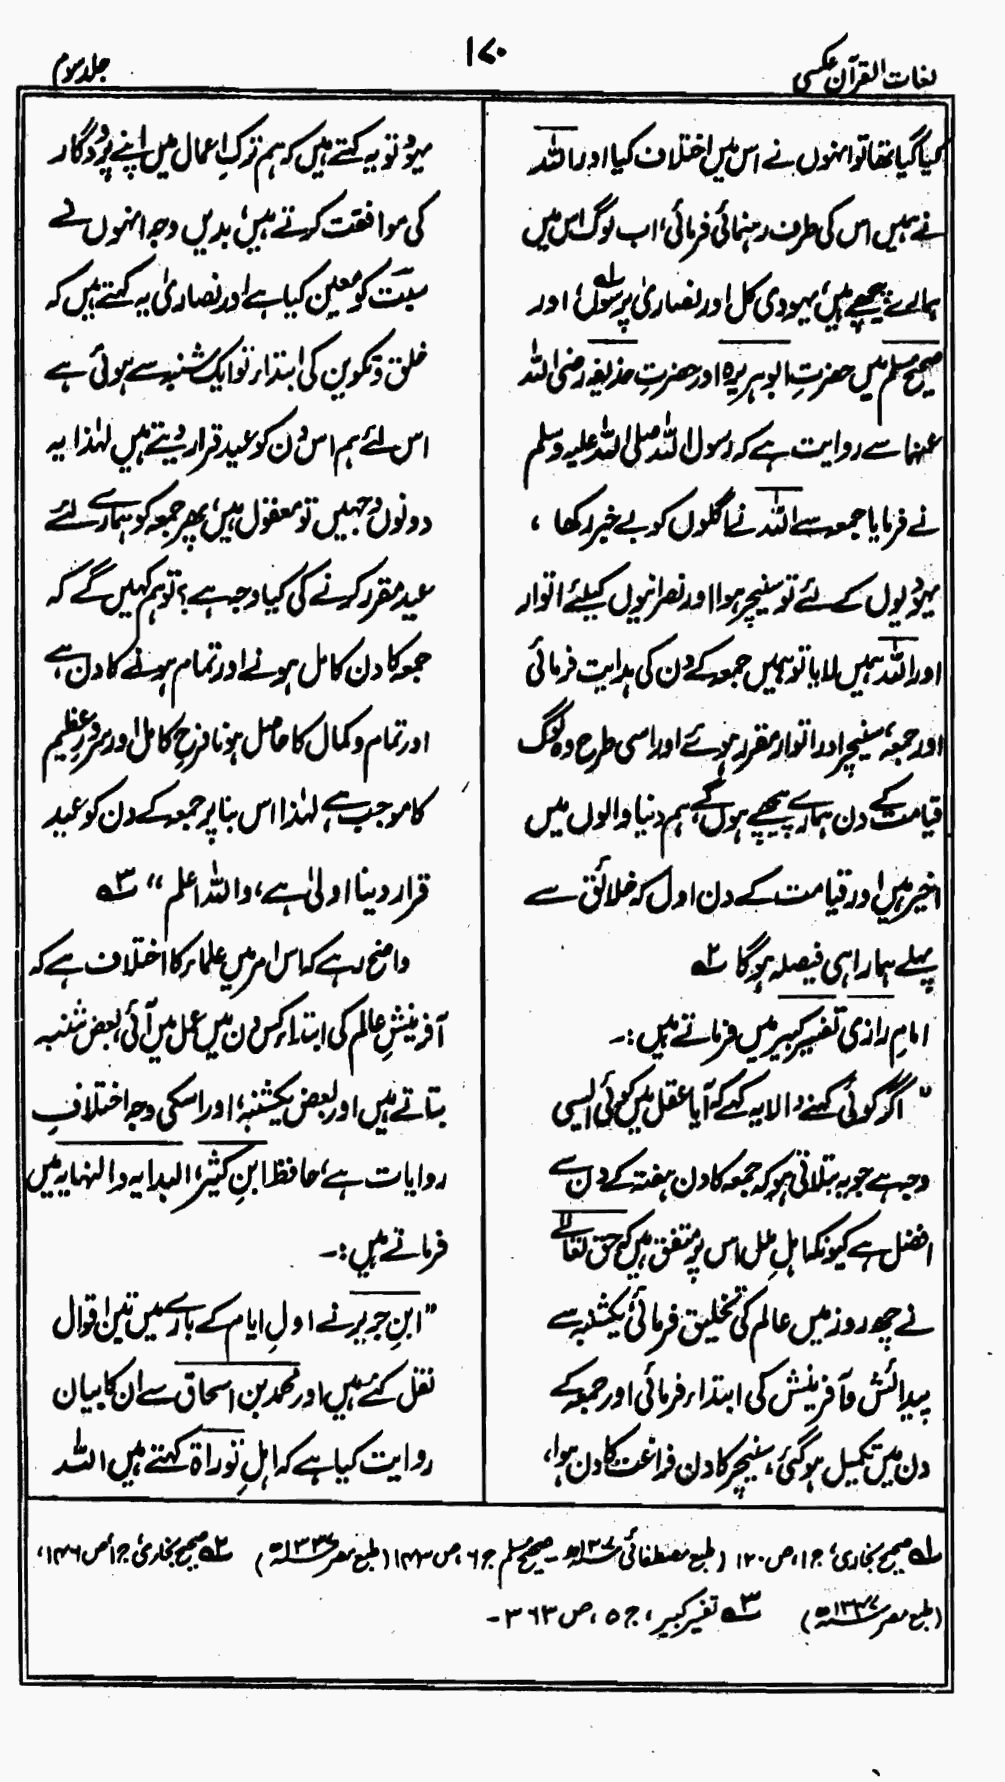 لغات القرآن عکسی
۱۷۰
جلد سوم
کیا گیا تھا تو انہوں نے اس میں اختلاف کیا اور اللہ
نے ہمیں اس کی طرف رہنمائی فرمائی، اب لوگ اس میں
ہمارے پیچھے ہیں، یہودی کل اور نصاریٰ پرسوں؎۱ اور
صحیح مسلم میں حضرتِ ابوہریرہ اور حضرتِ حذیفہ رضی اللہ
عنہما سے روایت ہے کہ رسول اللہ صلی اللہ علیہ وسلم
نے فرمایا جمعہ سے اللہ نے اگلوں کو بے خبر رکھا ،
یہودیوں کے لئے تو سنیچر ہوا اور نصرانیوں کیلئے اتوار
اور اللہ ہمیں لایا تو ہمیں جمعہ کے دن کی ہدایت فرمائی
اور جمعہ، سنیچر اور اتوار مقرر ہوئے اور اسی طرح وہ لوگ
قیامت کے دن ہمارے پیچھے ہوں گے، ہم دنیا والوں میں
اخیر ہیں اور قیامت کے دن اول کہ خلائق سے
پہلے ہمارا ہی فیصلہ ہو گا ؎۲
امام رازی تفسیر کبیر میں فرماتے ہیں :۔
" اگر کوئی کہنے والا یہ کہے کہ آیا عقل میں کوئی ایسی
وجہ ہے جو یہ بتلاتی ہو کہ جمعہ کا دن ہفتہ کے دن سے
افضل ہے کیونکہ اہلِ ملل اس پر متفق ہیں کہ حق تعالےٰ
نے چھ روز میں عالم کی تخلیق فرمائی یکشنبہ سے
پیدائش و آفرینش کی ابتداء فرمائی اور جمعہ کے
دن میں تکمیل ہو گئی، سنیچر کا دن فراغت کا دن ہوا،
یہود تو یہ کہتے ہیں کہ ہم ترکِ اعمال میں اپنے پروردگار
کی موافقت کرتے ہیں، بدیں وجہ انہوں نے
سبت کو معین کیا ہے اور نصاریٰ یہ کہتے ہیں کہ
خلق و تکوین کی ابتداء تو ایک شنبہ سے ہوئی ہے
اس لئے ہم اس دن کو عید قرار دیتے ہیں لہٰذا یہ
دونوں وجہیں تو معقول ہیں، پھر جمعہ کو ہمارے لئے
عید مقرر کرنے کی کیا وجہ ہے؟ تو ہم کہیں گے کہ
جمعہ کا دن کامل ہونے اور تمام ہونے کا دن ہے
اور تمام و کمال کا حاصل ہونا فرحِ کامل اور سرورِ عظیم
کا موجب ہے لہٰذا اس بنا پر جمعہ کے دن کو عید
قرار دینا اولیٰ ہے، واللہ اعلم " ؎۳
واضح رہے کہ اس امر میں علماء کا اختلاف ہے کہ
آفرینشِ عالم کی ابتداء کس دن میں عمل میں آئی، بعض شنبہ
بتاتے ہیں اور بعض یکشنبہ، اور اسکی وجہ اختلافِ
روایات ہے، حافظ ابنِ کثیر، البدایہ والنہایہ میں
فرماتے ہیں :۔
"ابنِ جریر نے اولِ ایام کے بارے میں تین اقوال
نقل کئے ہیں اور محمد بن اسحاق سے ان کا بیان
روایت کیا ہے کہ اہلِ توراۃ کہتے ہیں اللہ
؎۱ صحیح بخاری، ج ۱، ص ۱۲۰ (طبع مصطفائی ۱۳۰۷ھ)۔ صحیح مسلم ج ۶، ص ۱۴۳ (طبع مصر ۱۳۴۷ھ) ؎۲ صحیح بخاری ج ۱، ص ۱۴۶،
(طبع مصر ۱۳۴۷ھ) ؎۳ تفسیر کبیر، ج ۵، ص ۳۶۳۔